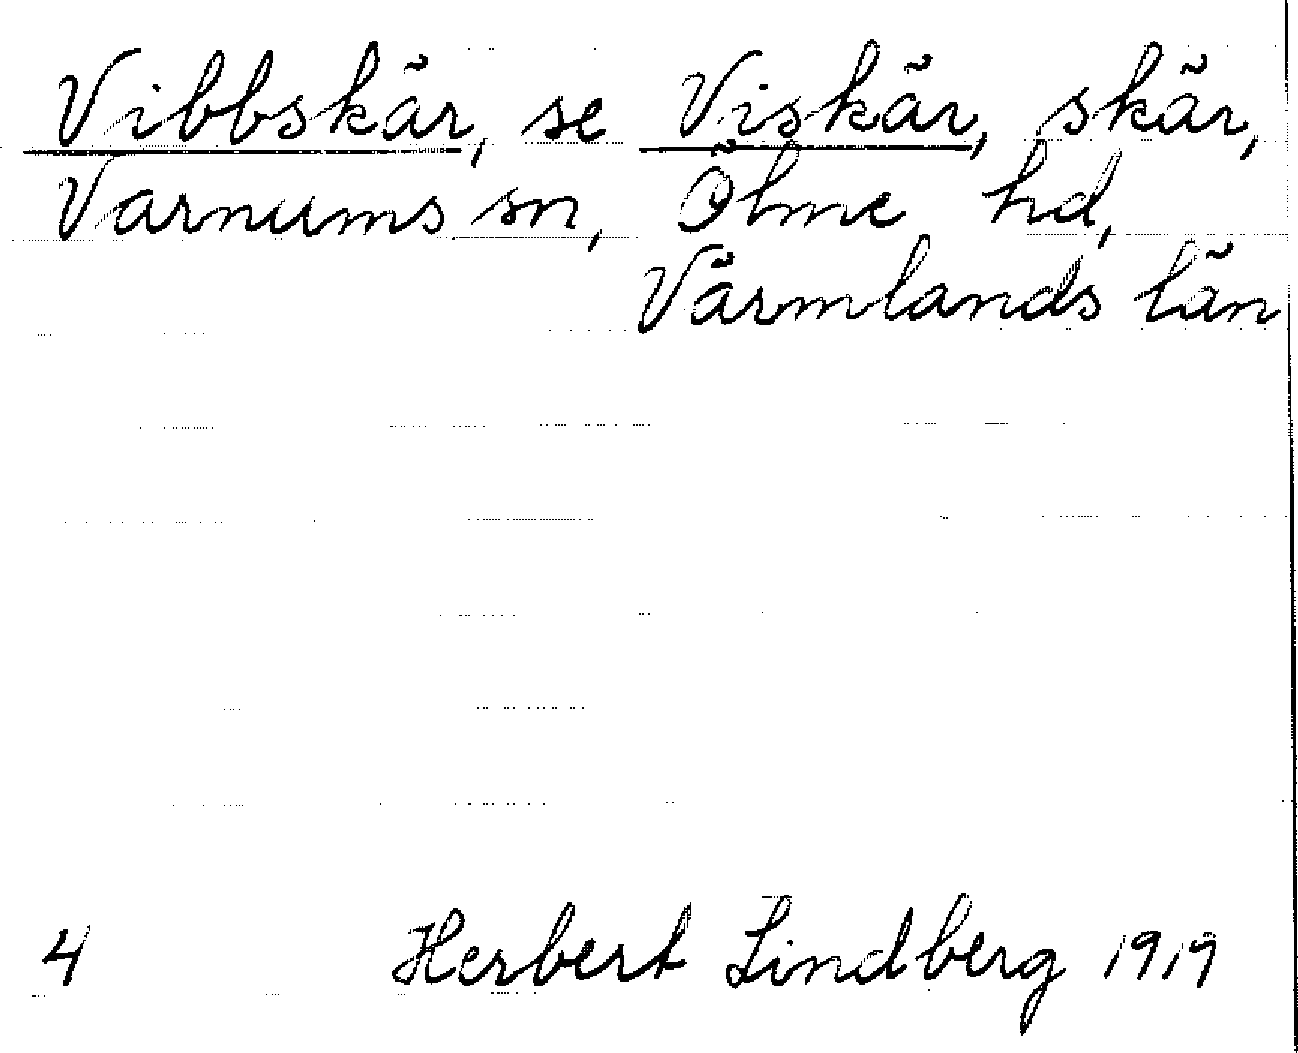 Vibbskär, se Viskär, skär,
Varnums sn, Ölme hd,
Värmlands län
4 Herbert Lindberg 1919